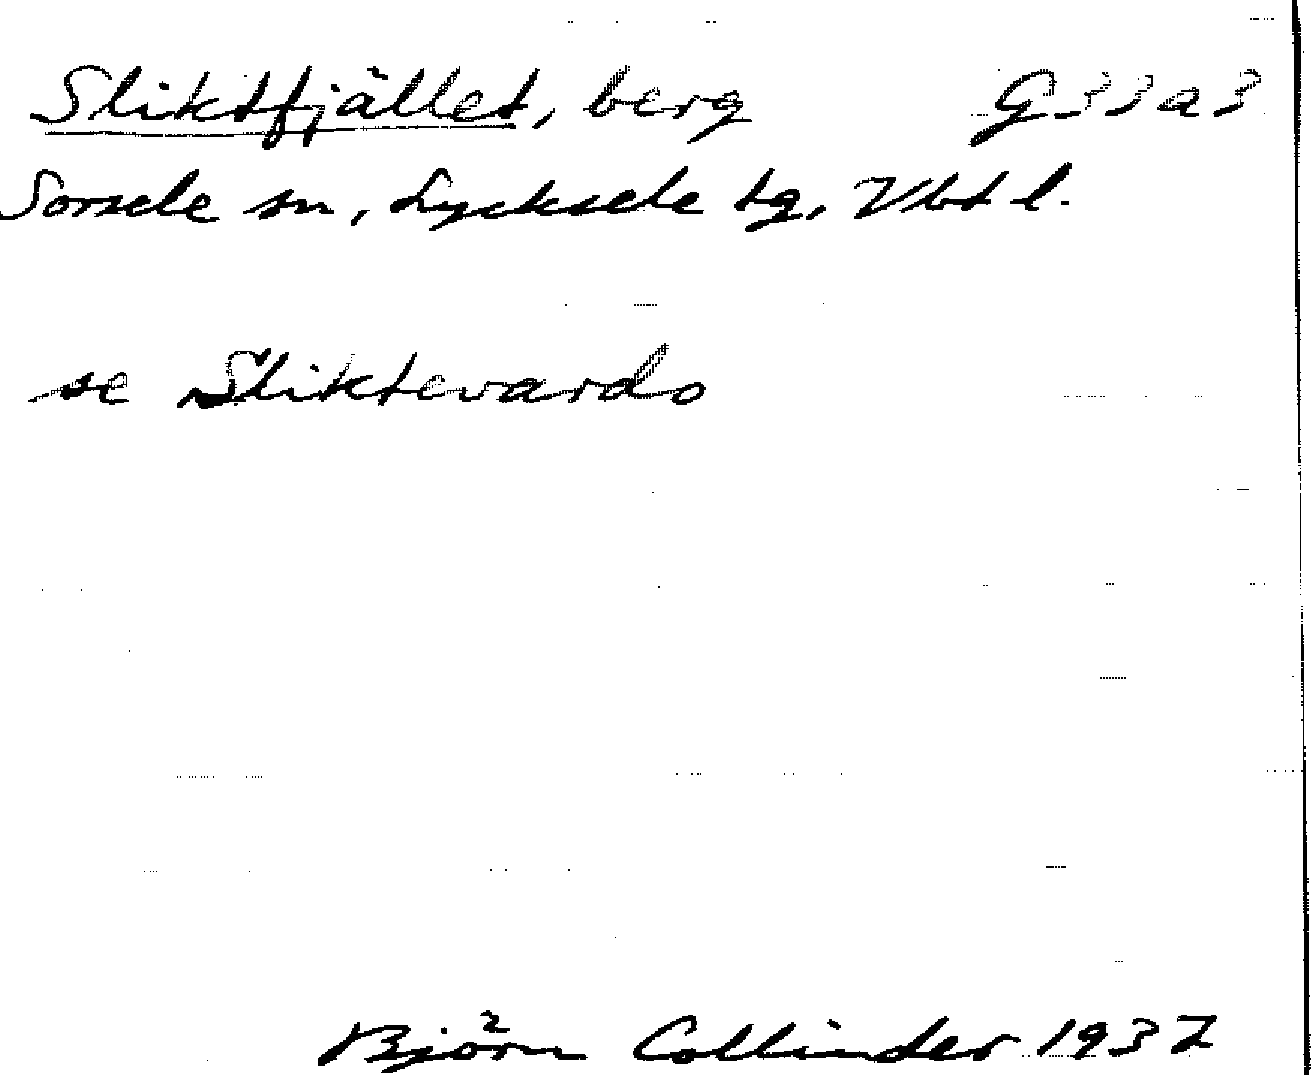 Sliktfjället, berg G33a3
Sorsele sn, Lycksele tg, Vbt l.
se Sliktevardo
Björn Collinder 1937